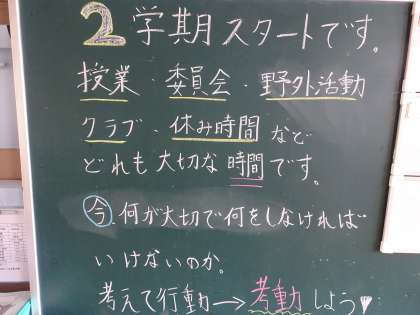 2学期スタートです。
授業・委員会・野外活動
クラブ・休み時間など
どれも大切な時間です。
今何が大切で何をしなければ
いけないのか。
考えて行動→考動しよう